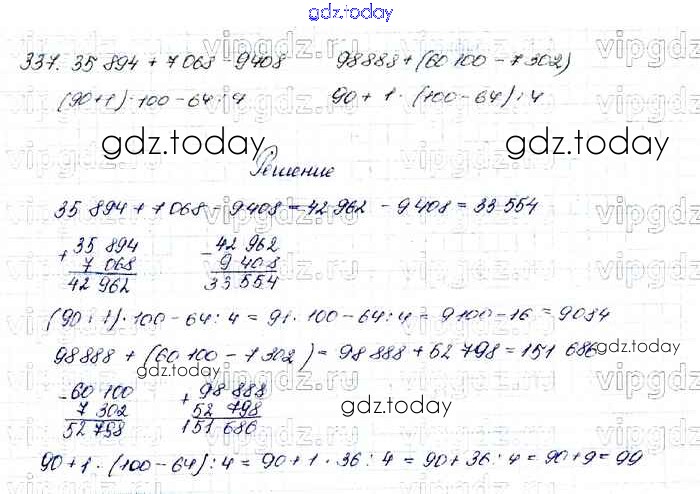 gdz.today
337. 35 894 + 7 068 - 9408 98 888 + (60 100 - 7 302)
(90+1)·100 - 64 : 4 90 + 1 · (100-64) : 4
gdz.today gdz.today
Решение
35 894 + 7 068 - 9 408 = 42 962 - 9 408 = 33 554
+ 35 894 - 42 962
7 068 9 408
42 962 33 554
(90+1)·100 - 64 : 4 = 91 · 100 - 64 : 4 = 9100 - 16 = 9084
gdz.today
98 888 + (60 100 - 7 302) = 98 888 + 52 798 = 151 686
gdz.today
- 60 100 + 98 888
7 302 52 798
52 798 151 686
gdz.today
90 + 1 · (100 - 64) : 4 = 90 + 1 · 36 : 4 = 90 + 36 : 4 = 90 + 9 = 99